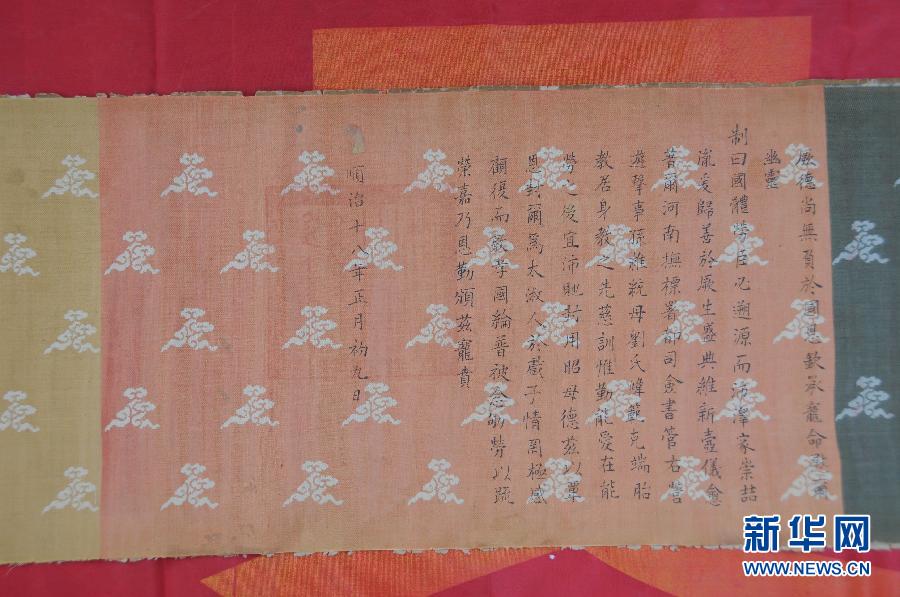 厥德尚無負於國恩欽承寵命慰
幽靈
制曰國體勞臣必遡源而沛澤家崇喆
胤爰歸善於厥生盛典維新壼儀愈
著爾河南撫標署都司僉書管右營
遊擊事孫維統母劉氏端範克端胎
教居身教之先慈訓惟勤能愛在能
勞之後宜沛貤封用昭母德茲以覃
恩封爾為太淑人於戲子情罔極感
顧復而敦孝國綸普被念劬勞以疏
榮嘉乃恩勤頒茲寵賁
順治十八年正月初九日
新华网
WWW.NEWS.CN